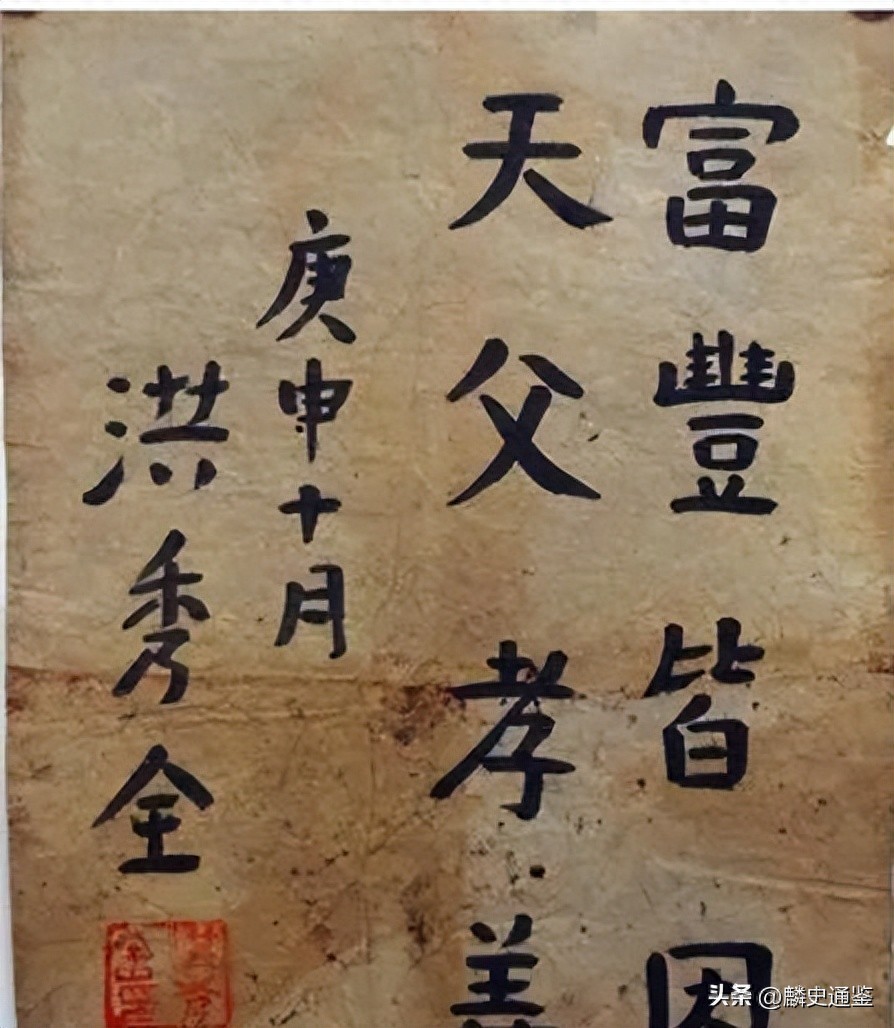 富豐皆因
天父孝
庚申十月
洪秀全
头条 @麟史通鉴